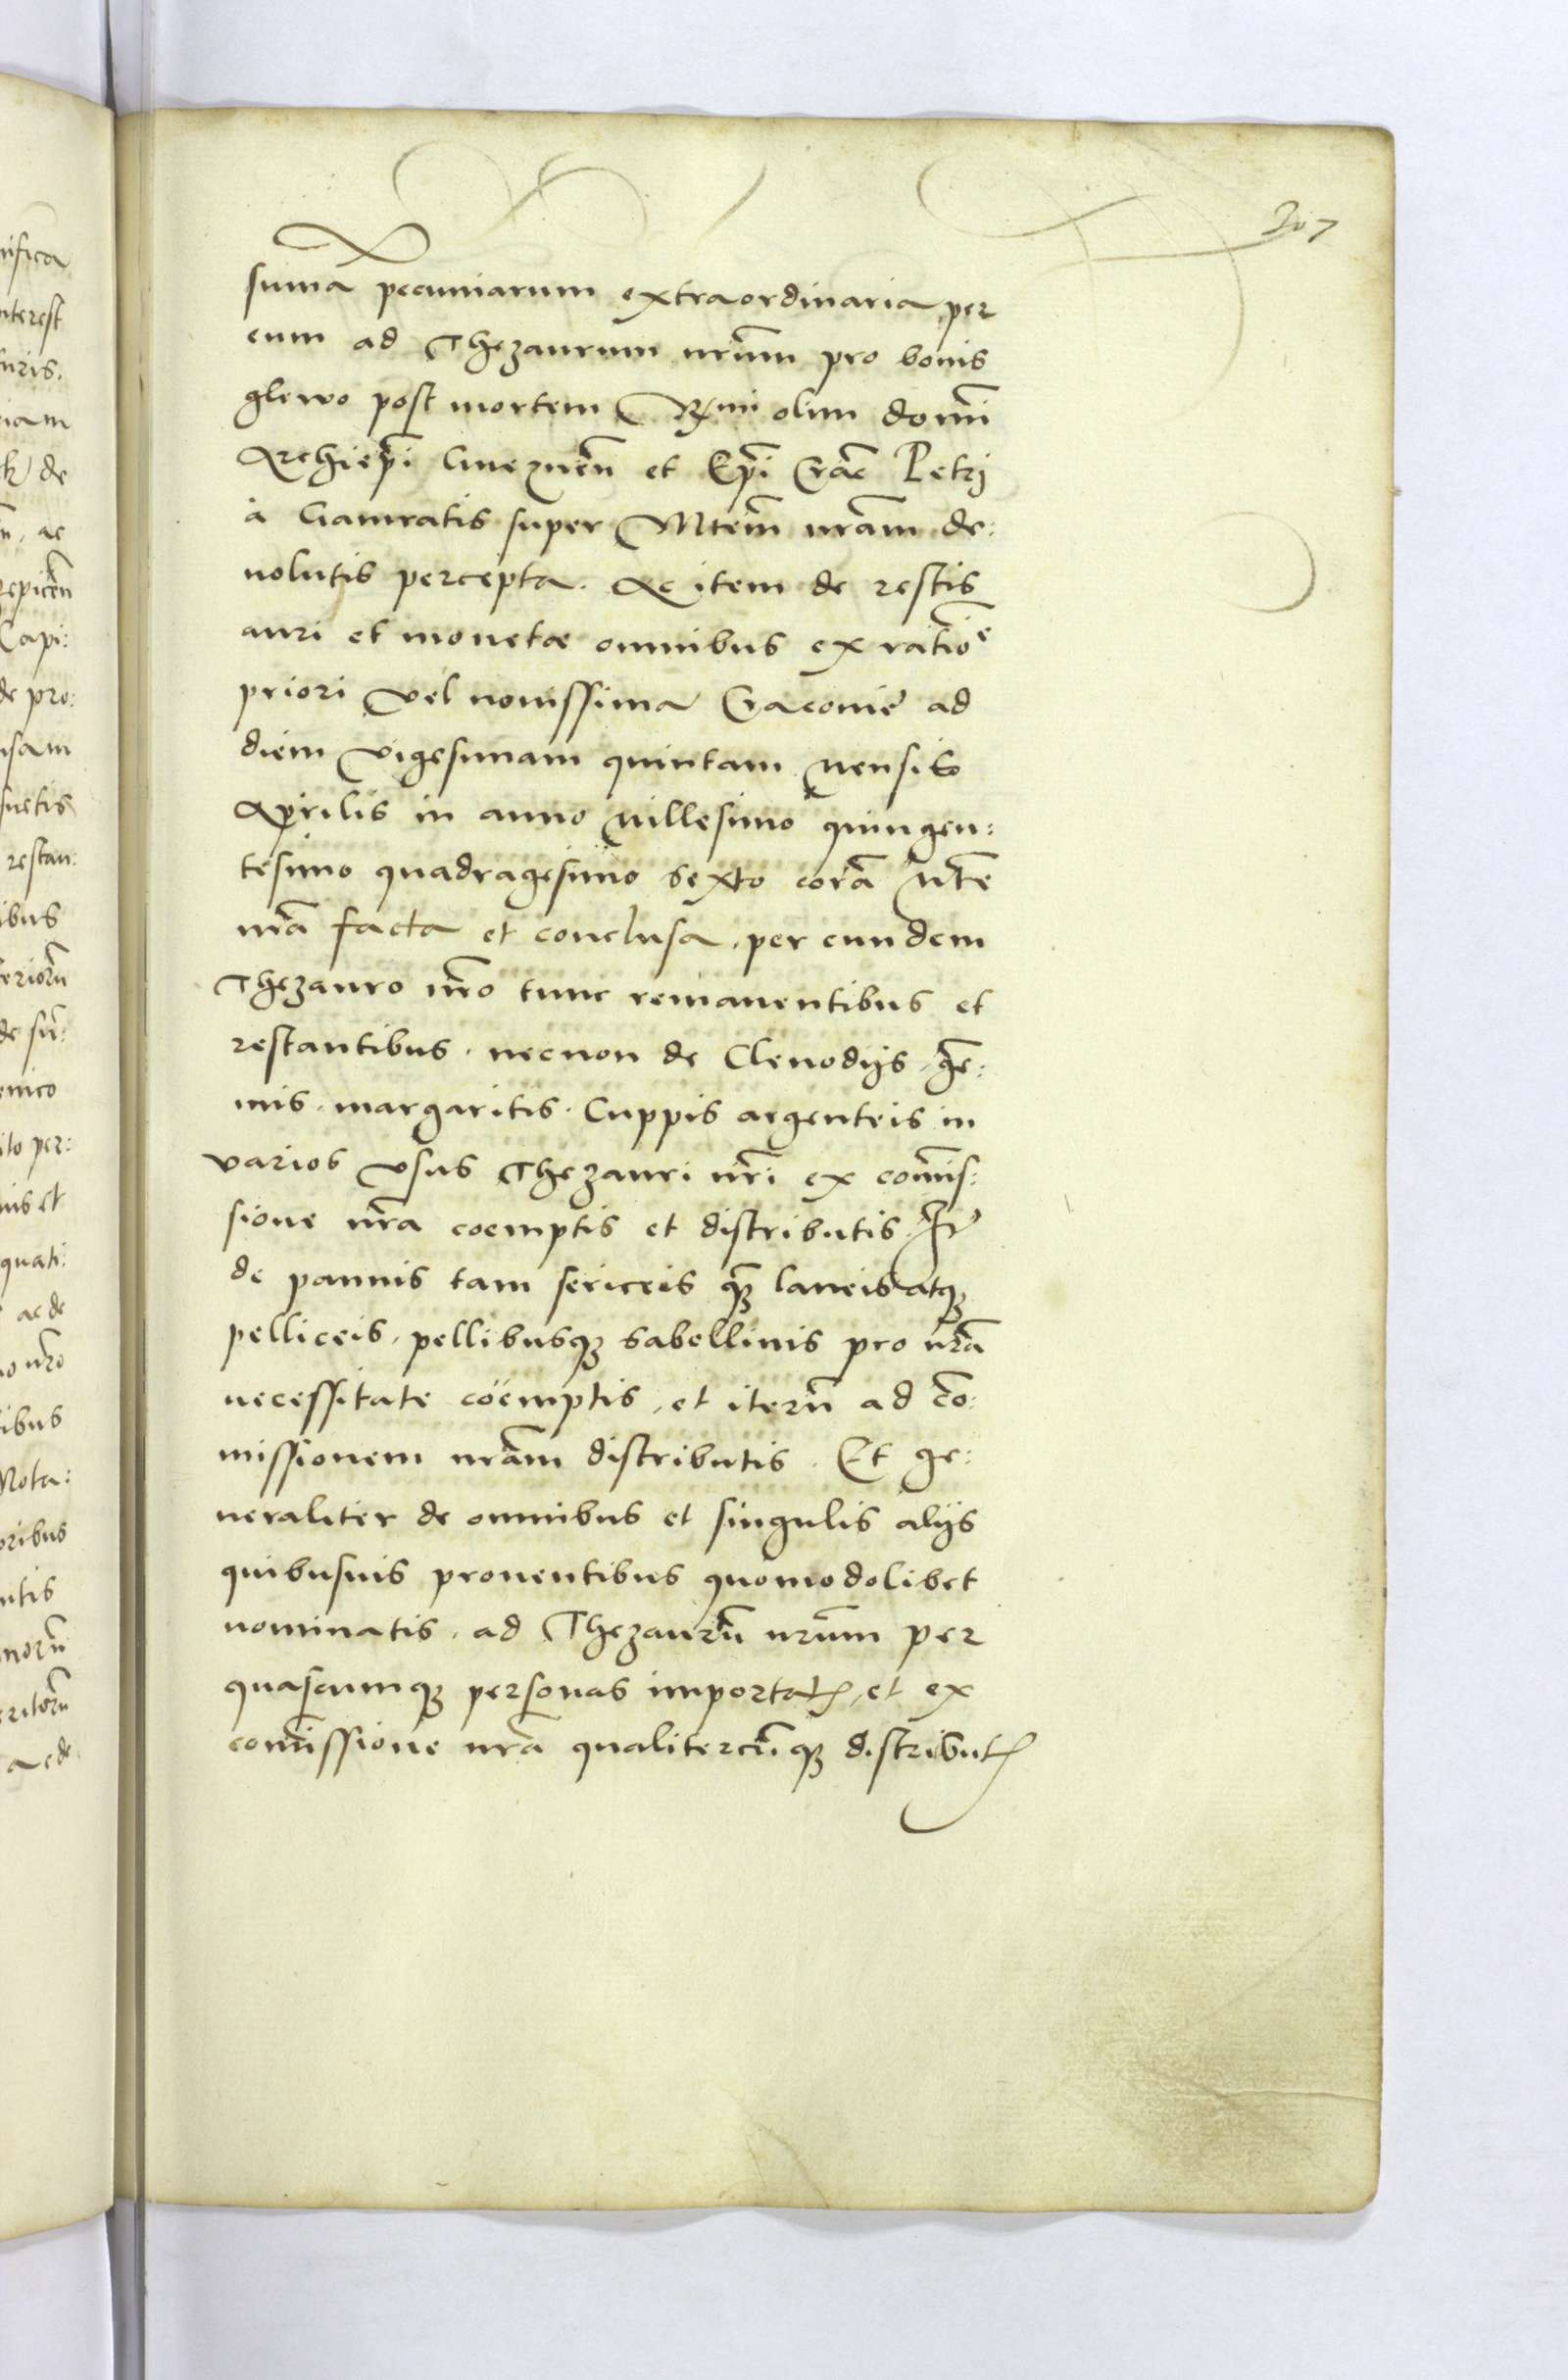 207
suma pecuniarum extraordinaria per
eum ad Thezaurum nrum pro bonis
glewo post mortem Rmi olim domi
Archiepi Gneznen et Epi Crac Petri
a Gamratis super Mtem nram de:
uolutis percepta. Ac item de restis
auri et monetæ omnibus ex ratioe
priori vel nouissima Cracouie ad
diem vigesimam quintam Mensis
Aprilis in anno Millesimo quingen:
tesimo quadragesimo sexto cora Mte
nra facta et conclusa, per eundem
Thezauro nro tunc remanentibus et
restantibus, necnon de Clenodijs, ge:
mis, margaritis, Cuppis argenteis in
varios vsus Thezauri nri ex comis:
sione nra coemptis et distributis. It
de pannis tam sericeis qz laneis atqz
pelliceis, pellibusqz sabellinis pro nra
necessitate coëmptis, et iteru ad co:
missionem nram distributis. Et ge:
neraliter de omnibus et singulis alijs
quibusuis prouentibus quomodolibet
nominatis, ad Thezauru nrum per
quascumqz personas importat, et ex
comissione nra qualitercuqz distribut
nifica
nterest
turis.
riam
de
ac
repicen
Capi:
de pro:
nsam
suetis
restan:
ibus
terioru
de su:
ito per:
nis et
quati:
ac de
no nro
ibus
Nota:
oribus
ntis
noru
eritoru
ac de